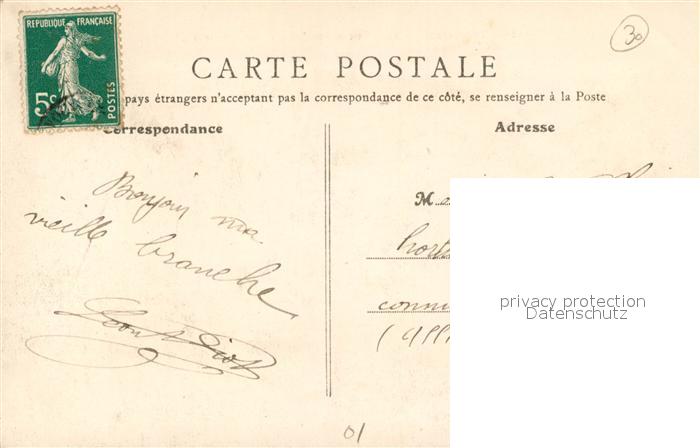 RÉPUBLIQUE FRANÇAISE
5c
POSTES
30
CARTE POSTALE
pays étrangers n'acceptant pas la correspondance de ce côté, se renseigner à la Poste
Correspondance
Adresse
Bonjour ma
vieille branche
M
privacy protection
Datenschutz
01